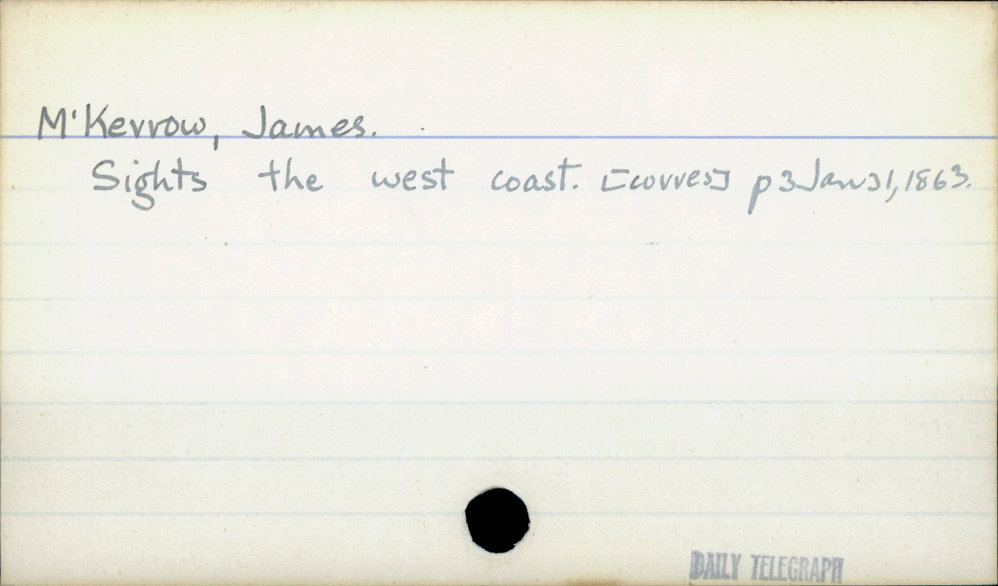 M'Kerrow, James.
Sights the west coast. [corres] p3 Jan 31, 1863.
DAILY TELEGRAPH